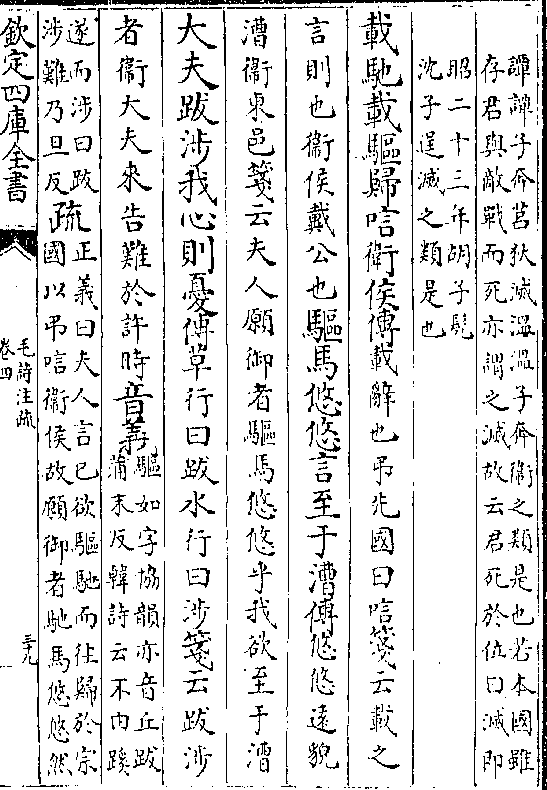 譚譚子奔莒狄滅溫溫子奔衞之類是也若本國雖
存君與敵戰而死亦謂之滅故云君死於位曰滅即
昭二十三年胡子髠
沈子逞滅之類是也
載馳載驅歸唁衛侯傳載辭也弔失國曰唁箋云載之
言則也衞侯戴公也驅馬悠悠言至于漕傳悠悠遠貌
漕衞東邑箋云夫人願御者驅馬悠悠乎我欲至于漕
大夫跋涉我心則憂傳草行曰跋水行曰涉箋云跋涉
者衞大夫來告難於許時音義驅如字協韻亦音丘跋
蒲末反韓詩云不由蹊
遂而涉曰跋
涉難乃旦反疏正義曰夫人言己欲驅馳而往歸於宗
國以弔唁衞侯故願御者馳馬悠悠然
欽定四庫全書
毛詩注疏
卷四
三九